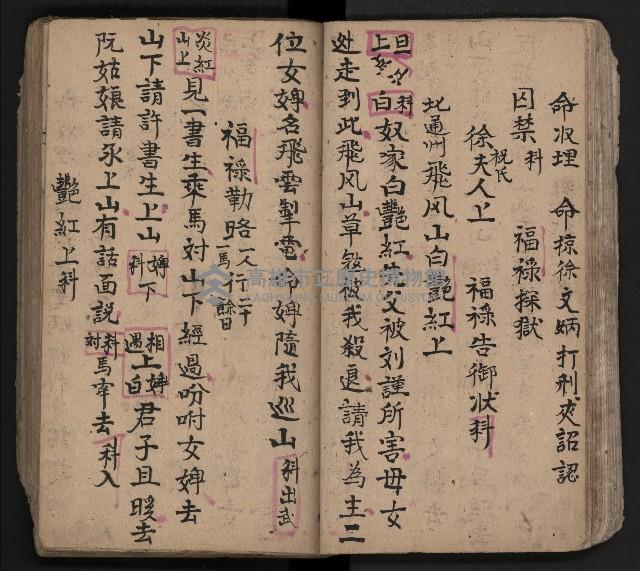 命收埋 命掠徐文炳打刑夾詔認
囚禁科 福祿探獄
徐夫人上 祝氏 福祿告御狀科
北通州飛风山白艷紅上
旦上 白科 奴家白艷紅 父被刘謹所害母女
走到此飛风山草 被我殺退請我為主二
位女婢名飛雲掣電 婢隨我巡山 科出武
福祿勒路 一人一馬 行 二十餘日
炎紅山上 見一書生乘馬对山下經過吩咐女婢去
山下請許書生上山 婢科 下 相遇 上婢白 君子且 去
阮姑娘請汞上山有話面説 科対 馬牽去 科入
艷紅上科
高雄市立歷史博物館
KAOHSIUNG MUSEUM OF HISTORY